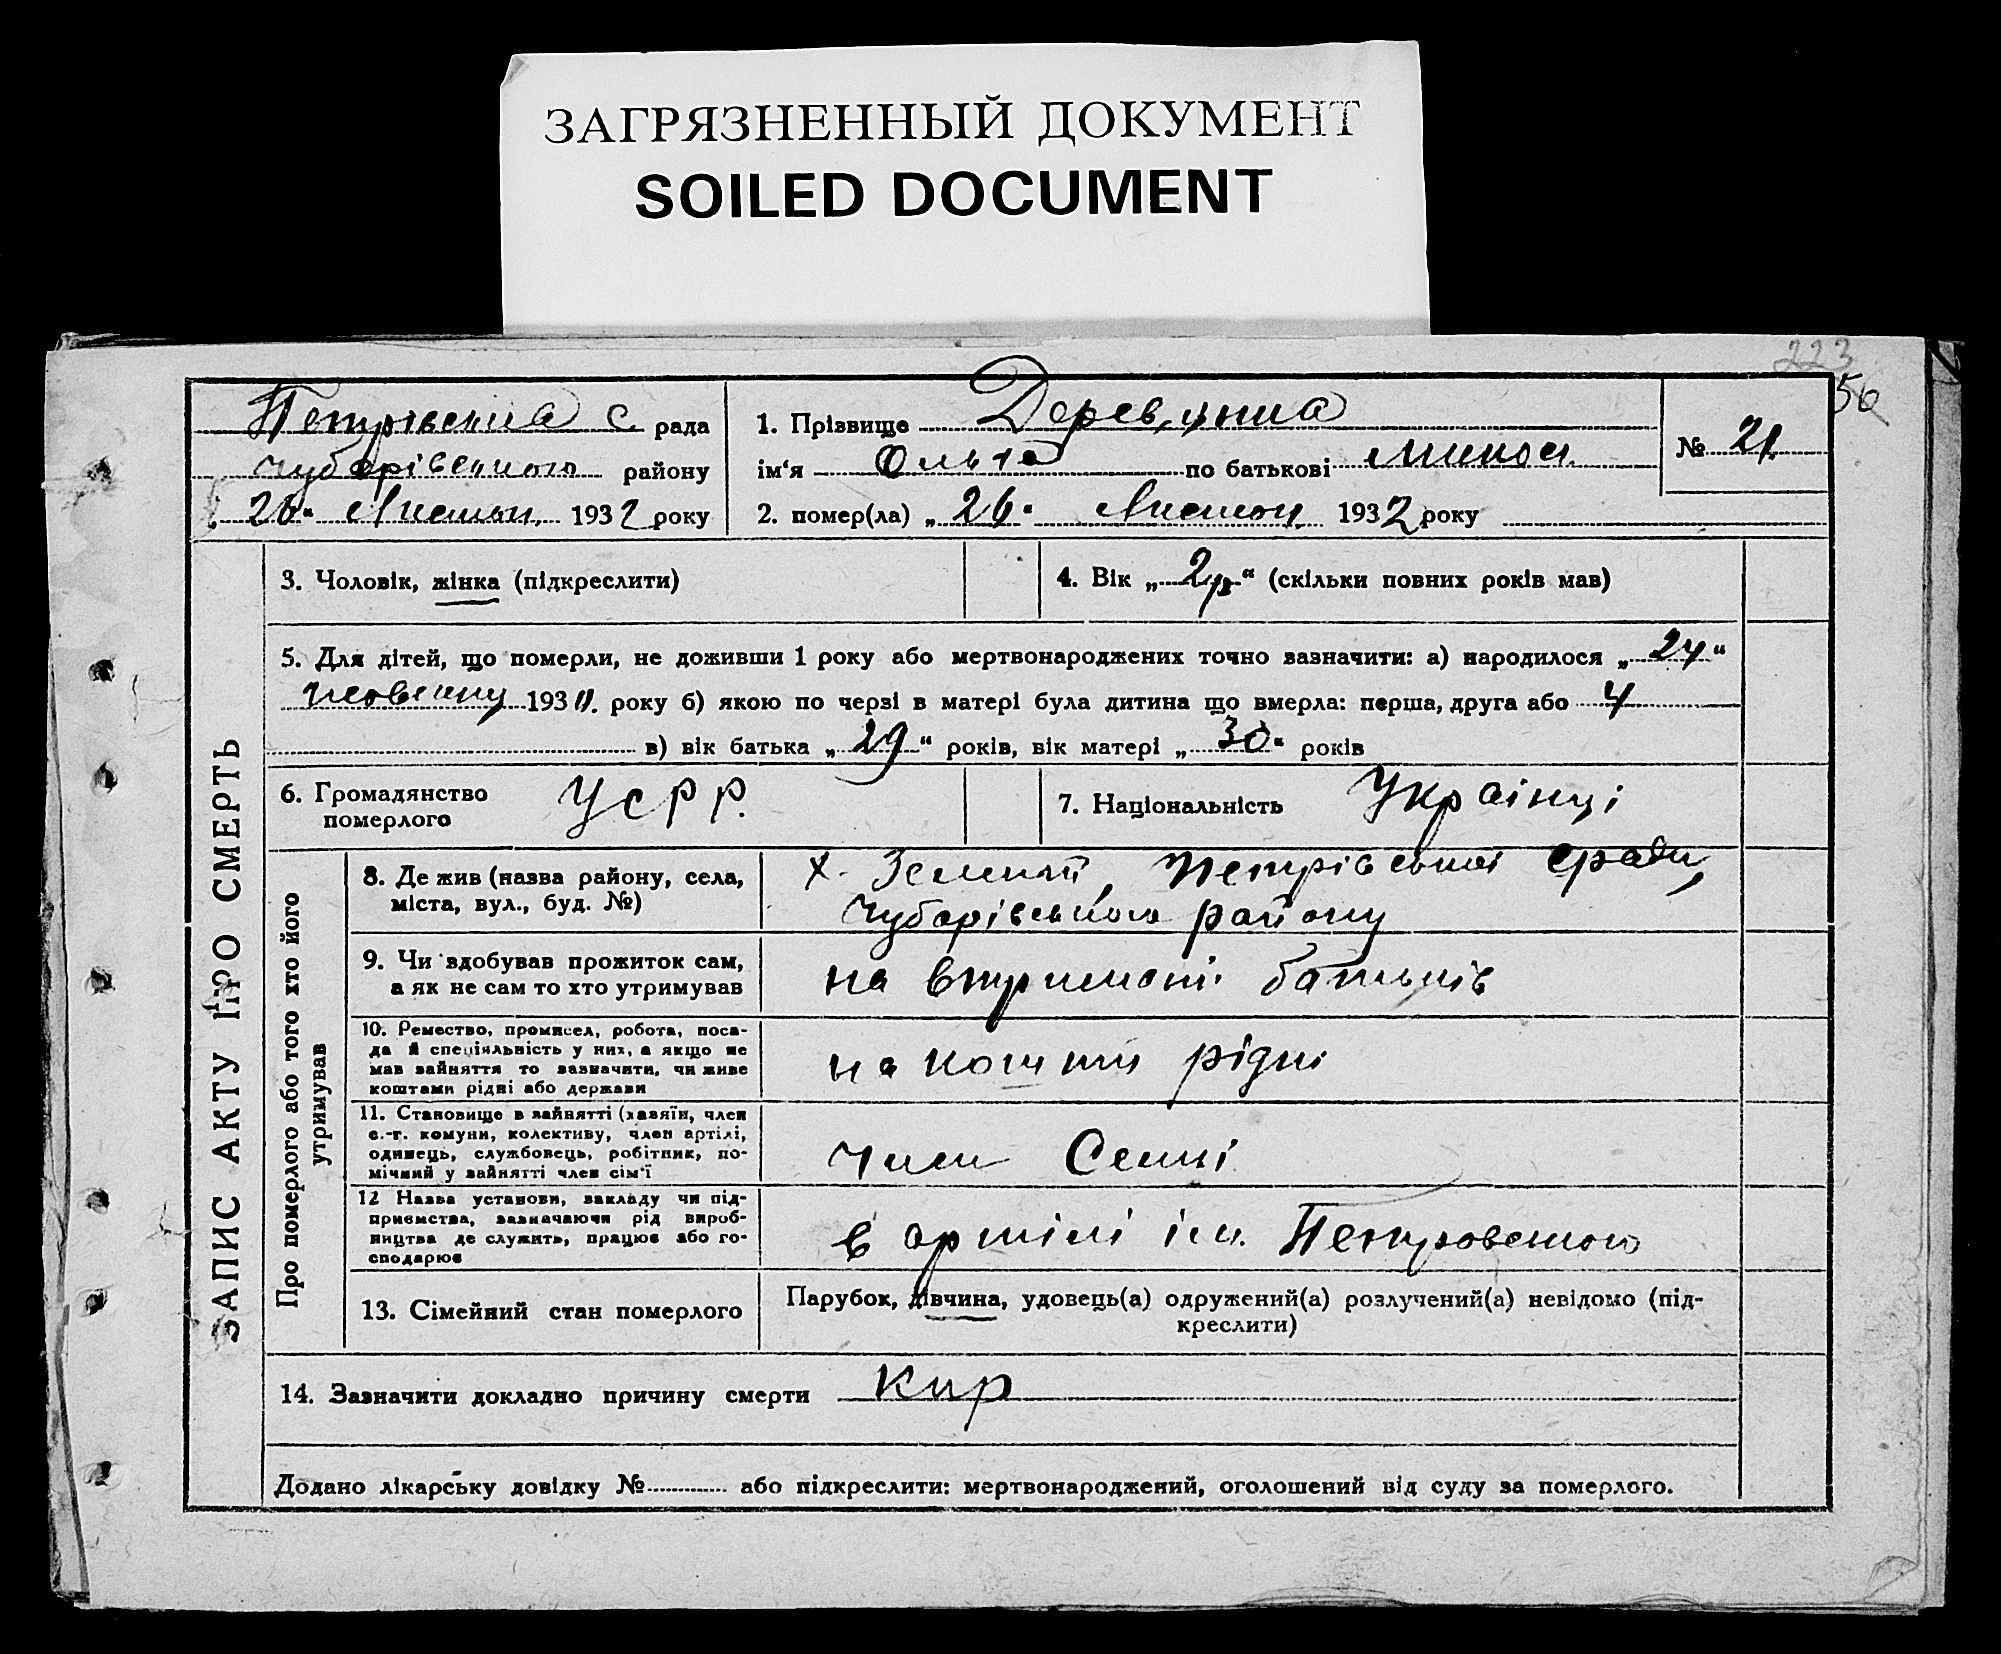 ЗАГРЯЗНЕННЫЙ ДОКУМЕНТ
SOILED DOCUMENT
223
56
Петрівська с. рада
Чубарівського району
„26“ Листоп. 1932 року
1. Прізвище Деревʼянка
ім‘я Ольга по батькові Микол.
№ 21.
2. помер(ла) „26“ Листоп. 1932 року
ЗАПИС АКТУ ПРО СМЕРТЬ
3. Чоловік, жінка (підкреслити)
4. Вік „2р“ (скільки повних років мав)
5. Для дітей, що померли, не доживши 1 року або мертвонароджених точно зазначити: а) народилося „24“
193 року б) якою по черзі в матері була дитина що вмерла: перша, друга або 4
в) вік батька „29“ років, вік матері „30“ років
6. Громадянство померлого УСРР.
7. Національність Українці
Про померлого або того хто його утримував
8. Де жив (назва району, села,
міста, вул., буд. №)
х. Зелений, Петрівської сради,
Чубарівського району
9. Чи вдобував прожиток сам,
а як не сам то хто утримував
на втримані батьків
10. Ремество, промисел, робота, поса-
да й спеціяльність у них, а якщо не
мав зайняття то зазначити, чи живе
коштами рідні або держави
на кошти рідні
11. Становище в зайнятті (хазяїн, член
с.-г. комуни, колективу, член артілі,
одинець, службовець, робітник, по-
мічний у зайнятті член сім‘ї
член Семьі
12 Назва установи, закладу чи під-
приємства, зазначаючи рід вироб-
ництва де служить, працює або го-
сподарює
в артілі ім. Петровського
13. Сімейний стан померлого
Парубок, дівчина, удовець(а) одружений(а) розлучений(а) невідомо (під-
креслити)
14. Зазначити докладно причину смерти Кир
Додано лікарську довідку № або підкреслити: мертвонароджений, оголошений від суду за померлого.